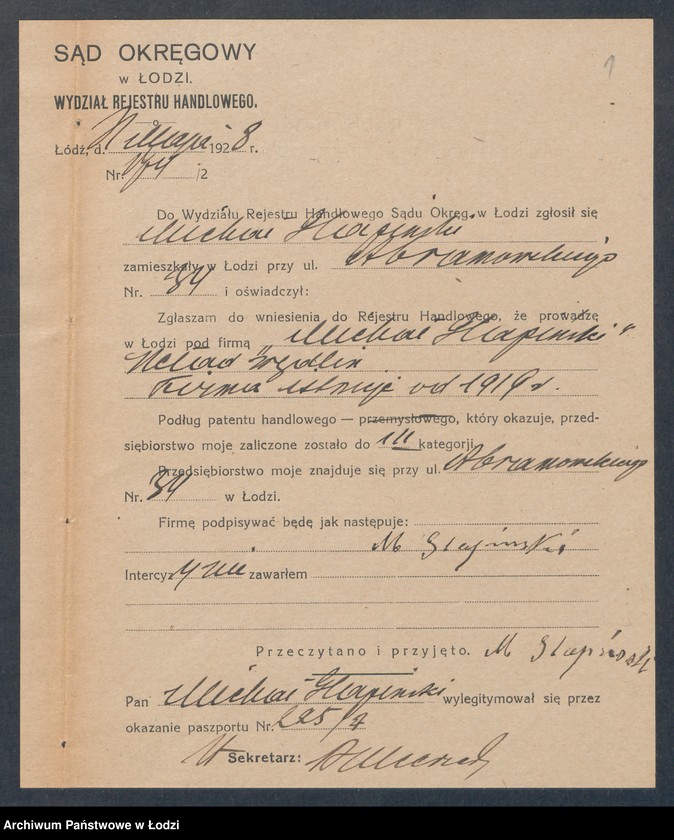 SĄD OKRĘGOWY
w ŁODZI.
WYDZIAŁ REJESTRU HANDLOWEGO.
1
Łódź, d. 11 maja 1928 r.
Nr. /2
Do Wydziału Rejestru Handlowego Sądu Okręg. w Łodzi zgłosił się
Michał Słapiński
zamieszkały w Łodzi przy ul. Abramowskiego
Nr. 34 i oświadczył:
Zgłaszam do wniesienia do Rejestru Handlowego, że prowadzę
w Łodzi pod firmą „Michał Słapiński"
Skład wędlin
Firma istnieje od 1919 r.
Podług patentu handlowego — przemysłowego, który okazuje, przed-
siębiorstwo moje zaliczone zostało do III kategorji.
Przedsiębiorstwo moje znajduje się przy ul. Abramowskiego
Nr. 34 w Łodzi.
Firmę podpisywać będę jak następuje:
M Słapiński
Intercyzy nie zawarłem
Przeczytano i przyjęto. M Słapiński
Pan Michał Słapiński wylegitymował się przez
okazanie paszportu Nr. 225/7
Sekretarz:
Archiwum Państwowe w Łodzi